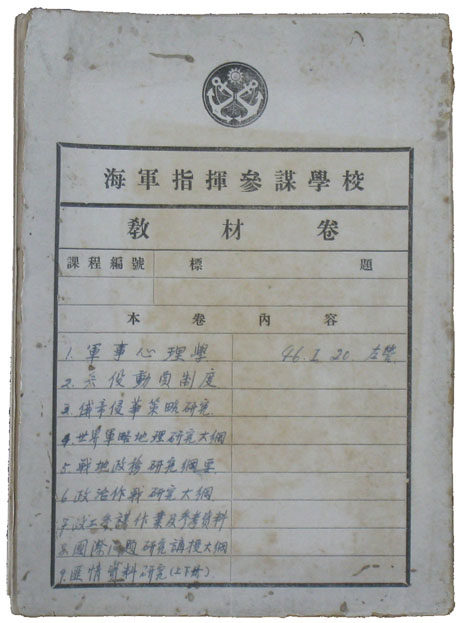 海軍指揮參謀學校
教材卷
課程編號 標題
本卷內容
1. 軍事心理學 46. I. 20. 左營
2. 兵役動員制度
3. 俄帝侵華策略研究
4. 世界軍略地理研究大綱
5. 戰地政務研究綱要
6. 政治作戰研究大綱
7. 政工參謀作業及參考資料
8. 國際問題研究講授大綱
9. 匪情資料研究(上下冊)